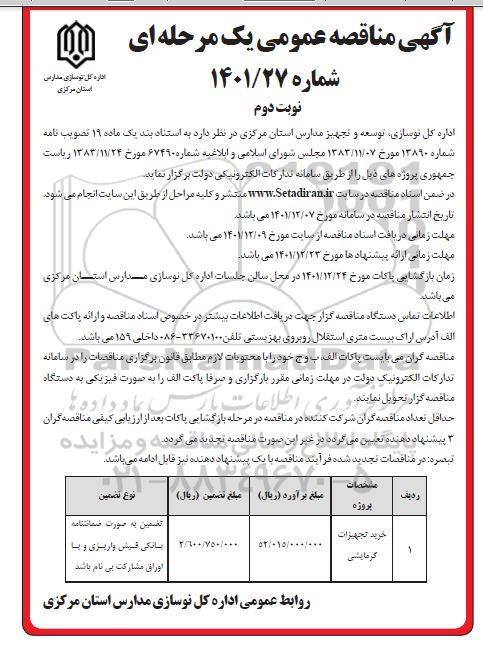 آگهی مناقصه عمومی یک مرحله ای
شماره ۱۴۰۱/۲۷
نوبت دوم
اداره کل نوسازی مدارس
استان مرکزی
اداره کل نوسازی، توسعه و تجهیز مدارس استان مرکزی در نظر دارد به استناد بند یک ماده ۱۹ تصویب نامه
شماره ۱۳۸۹۰ مورخ ۱۳۸۳/۱۱/۰۷ مجلس شورای اسلامی و ابلاغیه شماره ۶۷۴۹۰ مورخ ۱۳۸۳/۱۱/۲۴ ریاست
جمهوری پروژه های ذیل را از طریق سامانه تدارکات الکترونیکی دولت برگزار نماید.
در ضمن اسناد مناقصه در سایت www.Setadiran.ir منتشر و کلیه مراحل از طریق این سایت انجام می شود.
تاریخ انتشار مناقصه در سامانه مورخ ۱۴۰۱/۱۲/۰۷ می باشد.
مهلت زمانی دریافت اسناد مناقصه از سایت مورخ ۱۴۰۱/۱۲/۰۹ می باشد.
مهلت زمانی ارائه پیشنهاد ها مورخ ۱۴۰۱/۱۲/۲۳ می باشد.
زمان بازگشایی پاکات مورخ ۱۴۰۱/۱۲/۲۴ در محل سالن جلسات اداره کل نوسازی مدارس استان مرکزی
می باشد.
اطلاعات تماس دستگاه مناقصه گزار جهت دریافت اطلاعات بیشتر در خصوص اسناد مناقصه و ارائه پاکت های
الف آدرس اراک بیست متری استقلال روبروی بهزیستی تلفن ۳۳۶۷۰۱۰۰-۰۸۶ داخلی ۱۵۹ می باشد.
مناقصه گران می بایست پاکات الف، ب و ج خود را با محتویات لازم مطابق قانون برگزاری مناقصات را در سامانه
تدارکات الکترونیک دولت در مهلت زمانی مقرر بارگزاری و صرفا پاکت الف را به صورت فیزیکی به دستگاه
مناقصه گزار تحویل نمایند.
حداقل تعداد مناقصه گران شرکت کننده در مناقصه در مرحله بازگشایی پاکات بعد از ارزیابی کیفی مناقصه گران
۳ پیشنهاد دهنده تعیین می گردد در غیر این صورت مناقصه تجدید می گردد.
تبصره: در مناقصات تجدید شده فرآیند مناقصه با یک پیشنهاد دهنده نیز قابل ادامه می باشد.
ردیف مشخصات پروژه مبلغ برآورد (ریال) مبلغ تضمین (ریال) نوع تضمین
۱ خرید تجهیزات گرمایشی ۵۲/۰۱۵/۰۰۰/۰۰۰ ۲/۶۰۰/۷۵۰/۰۰۰ تضمین به صورت ضمانتنامه
بانکی فیش واریزی و یا
اوراق مشارکت بی نام باشد
روابط عمومی اداره کل نوسازی مدارس استان مرکزی
ParsNamadData
۰۲۱-۸۸۳۴۹۶۷۰-۵